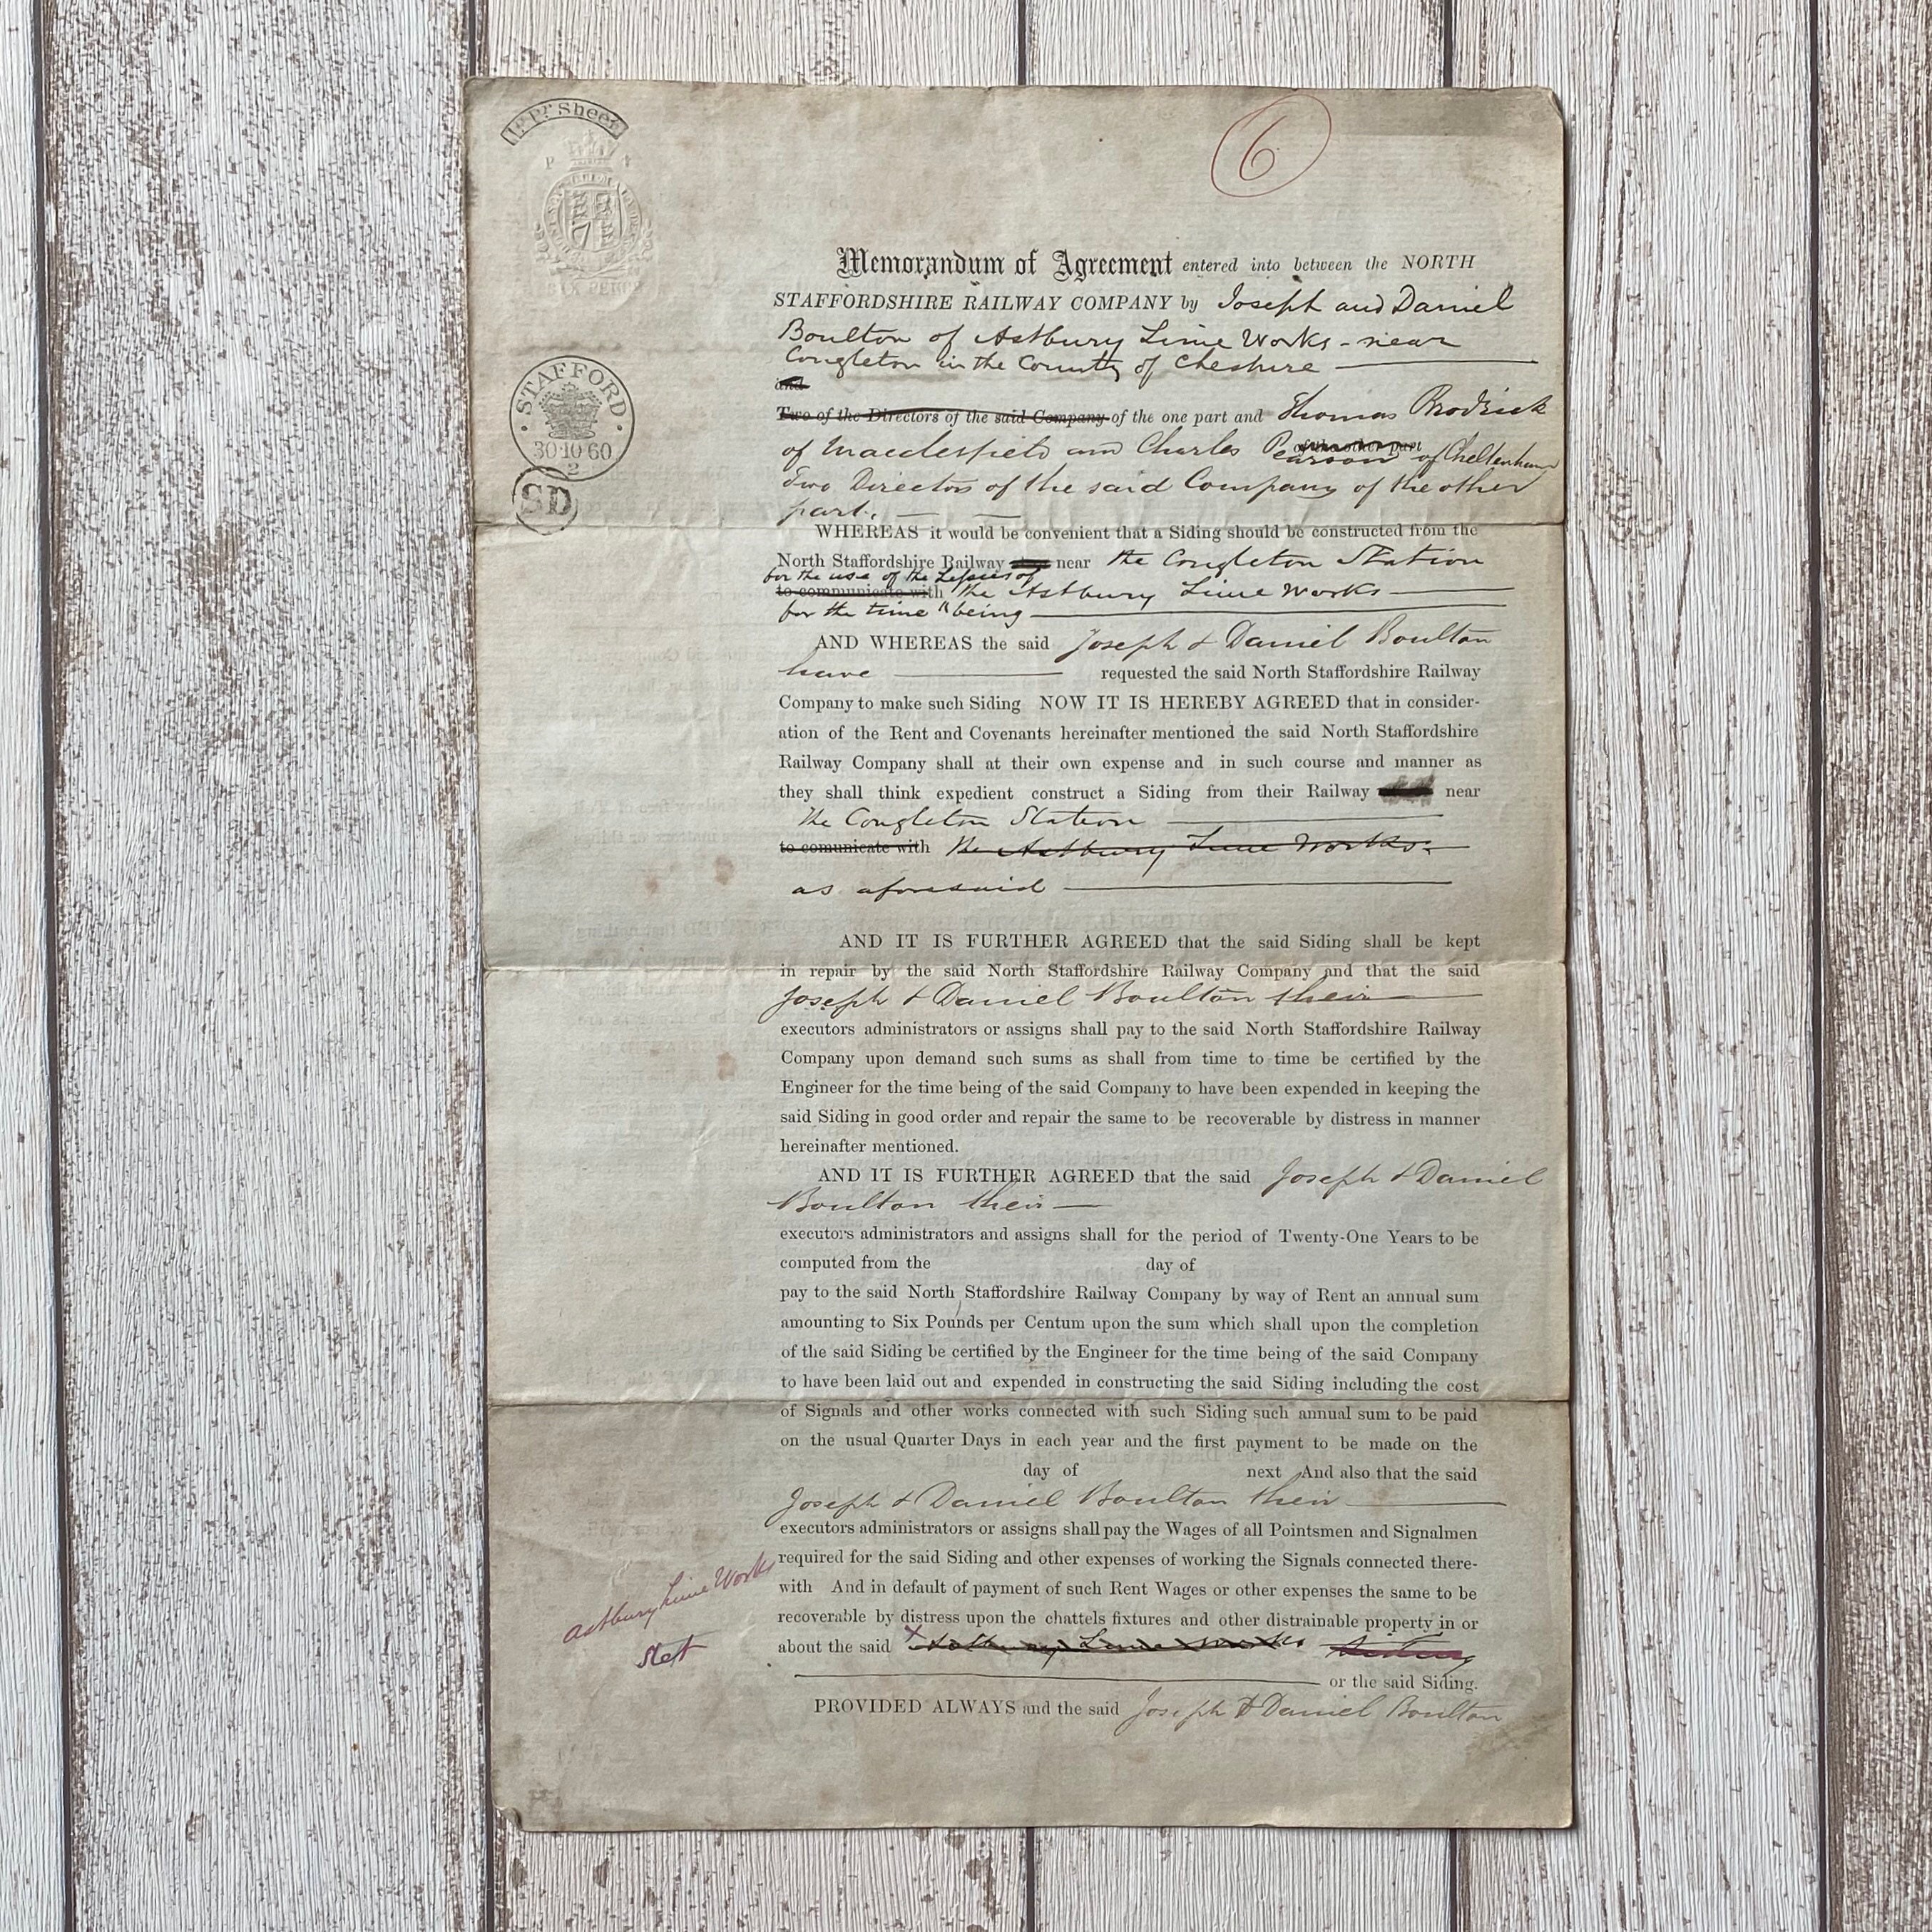 1d Pr Sheet
SIX PENCE
6
STAFFORD
30·10·60
2
SD
Memorandum of Agreement entered into between the NORTH
STAFFORDSHIRE RAILWAY COMPANY by Joseph and Daniel
Boulton of Astbury Lime Works - near
Congleton in the County of Cheshire
and
Two of the Directors of the said Company of the one part and Thomas Brodrick
of the other part
of Macclesfield and Charles Pearson of Cheltenham
Two Directors of the said Company of the other
part.
WHEREAS it would be convenient that a Siding should be constructed from the
North Staffordshire Railway near the Congleton Station
for the use of the Lessees of
to communicate with the Astbury Lime Works
for the time being
AND WHEREAS the said Joseph & Daniel Boulton
have requested the said North Staffordshire Railway
Company to make such Siding NOW IT IS HEREBY AGREED that in consider-
ation of the Rent and Covenants hereinafter mentioned the said North Staffordshire
Railway Company shall at their own expense and in such course and manner as
they shall think expedient construct a Siding from their Railway near
the Congleton Station
to comunicate with the Astbury Lime Works
as aforesaid
AND IT IS FURTHER AGREED that the said Siding shall be kept
in repair by the said North Staffordshire Railway Company and that the said
Joseph & Daniel Boulton their
executors administrators or assigns shall pay to the said North Staffordshire Railway
Company upon demand such sums as shall from time to time be certified by the
Engineer for the time being of the said Company to have been expended in keeping the
said Siding in good order and repair the same to be recoverable by distress in manner
hereinafter mentioned.
AND IT IS FURTHER AGREED that the said Joseph & Daniel
Boulton their
executors administrators and assigns shall for the period of Twenty-One Years to be
computed from the day of
pay to the said North Staffordshire Railway Company by way of Rent an annual sum
amounting to Six Pounds per Centum upon the sum which shall upon the completion
of the said Siding be certified by the Engineer for the time being of the said Company
to have been laid out and expended in constructing the said Siding including the cost
of Signals and other works connected with such Siding such annual sum to be paid
on the usual Quarter Days in each year and the first payment to be made on the
day of next And also that the said
Joseph & Daniel Boulton their
executors administrators or assigns shall pay the Wages of all Pointsmen and Signalmen
required for the said Siding and other expenses of working the Signals connected there-
with And in default of payment of such Rent Wages or other expenses the same to be
recoverable by distress upon the chattels fixtures and other distrainable property in or
Astbury Lime Works
Stet
about the said x Astbury Lime Works
or the said Siding.
PROVIDED ALWAYS and the said Joseph & Daniel Boulton